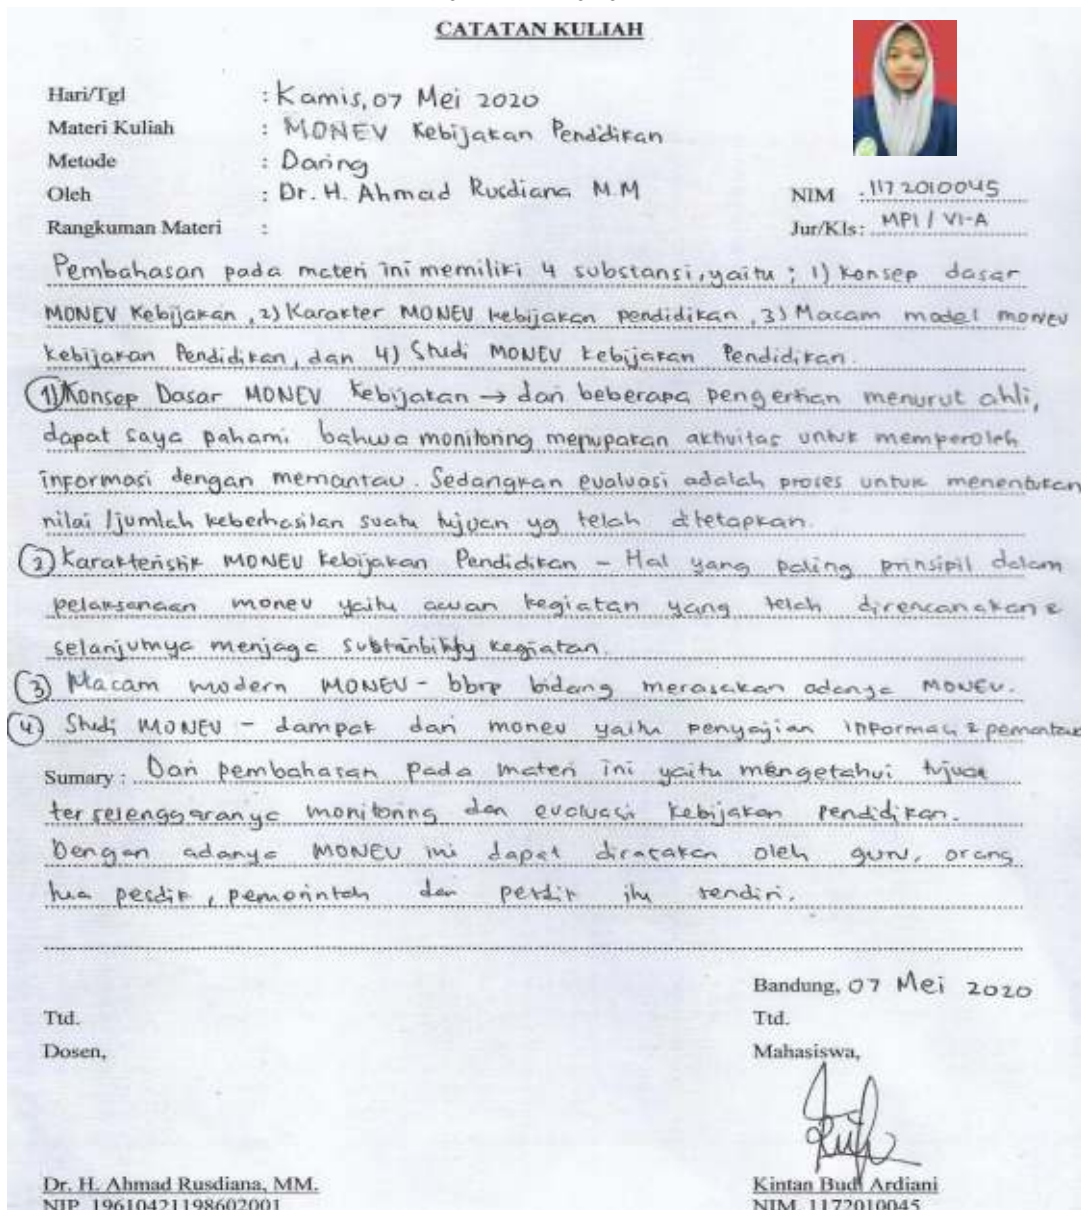 CATATAN KULIAH
Hari/Tgl : Kamis, 07 Mei 2020
Materi Kuliah : MONEV Kebijakan Pendidikan
Metode : Daring
Oleh : Dr. H. Ahmad Rusdiana M.M
NIM : 1172010045
Rangkuman Materi :
Jur/Kls : MPI / VI-A
Pembahasan pada materi ini memiliki 4 substansi, yaitu ; 1) Konsep dasar
MONEV Kebijakan, 2) Karakter MONEV kebijakan pendidikan, 3) Macam model monev
kebijakan Pendidikan, dan 4) Studi MONEV kebijakan Pendidikan.
1) Konsep Dasar MONEV Kebijakan → dari beberapa pengertian menurut ahli,
dapat saya pahami bahwa monitoring merupakan aktivitas untuk memperoleh
informasi dengan memantau. Sedangkan evaluasi adalah proses untuk menentukan
nilai / jumlah keberhasilan suatu tujuan yg telah ditetapkan.
2) Karakteristik MONEV Kebijakan Pendidikan - Hal yang paling prinsipil dalam
pelaksanaan monev yaitu acuan kegiatan yang telah direncanakan &
selanjutnya menjaga kegiatan.
3) Macam modern MONEV - bbrp bidang merasakan adanya MONEV.
4) Studi MONEV - dampak dari monev yaitu penyajian informasi &
Sumary : Dari pembahasan pada materi ini yaitu mengetahui tujuan
terselenggaranya monitoring dan evaluasi kebijakan pendidikan.
Dengan adanya MONEV ini dapat dirasakan oleh guru, orang
tua pesdik, pemerintah dan pesdik itu sendiri.
Bandung, 07 Mei 2020
Ttd.
Ttd.
Dosen,
Mahasiswa,
Dr. H. Ahmad Rusdiana, MM.
Kintan Budi Ardiani
NIP. 19610421198602001
NIM. 1172010045